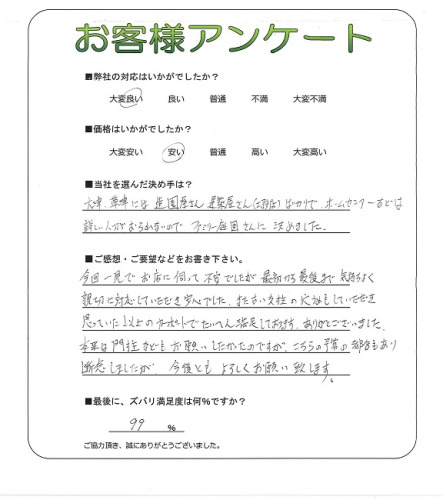 お客様アンケート
■弊社の対応はいかがでしたか?
大変良い 良い 普通 不満 大変不満
■価格はいかがでしたか?
大変安い 安い 普通 高い 大変高い
■当社を選んだ決め手は?
大津、草津には 造園屋さん 建築屋さん ばかりで ホームセンターなどは
詳しい人がおられないので ファミリー庭園さんに 決めました。
■ご感想・ご要望などをお書き下さい。
今回 一見で お店に伺って 不安でしたが 最初から最後まで 気持ちよく
親切に対応していただき
思っていた以上の でたいへん満足しております。ありがとうございました。
本来は 門柱などもお願いしたかったのですが、こちらの予算の都合もあり
断念しましたが 今後とも よろしくお願い致します。
■最後に、ズバリ満足度は何%ですか?
99 %
ご協力頂き、誠にありがとうございました。